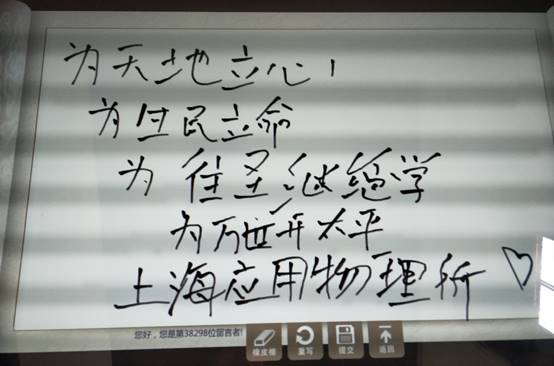 为天地立心，
为生民立命
为往圣继绝学
为万世开太平
上海应用物理所♡
您好，您是第38298位留言者!
橡皮擦 重写 提交 返回